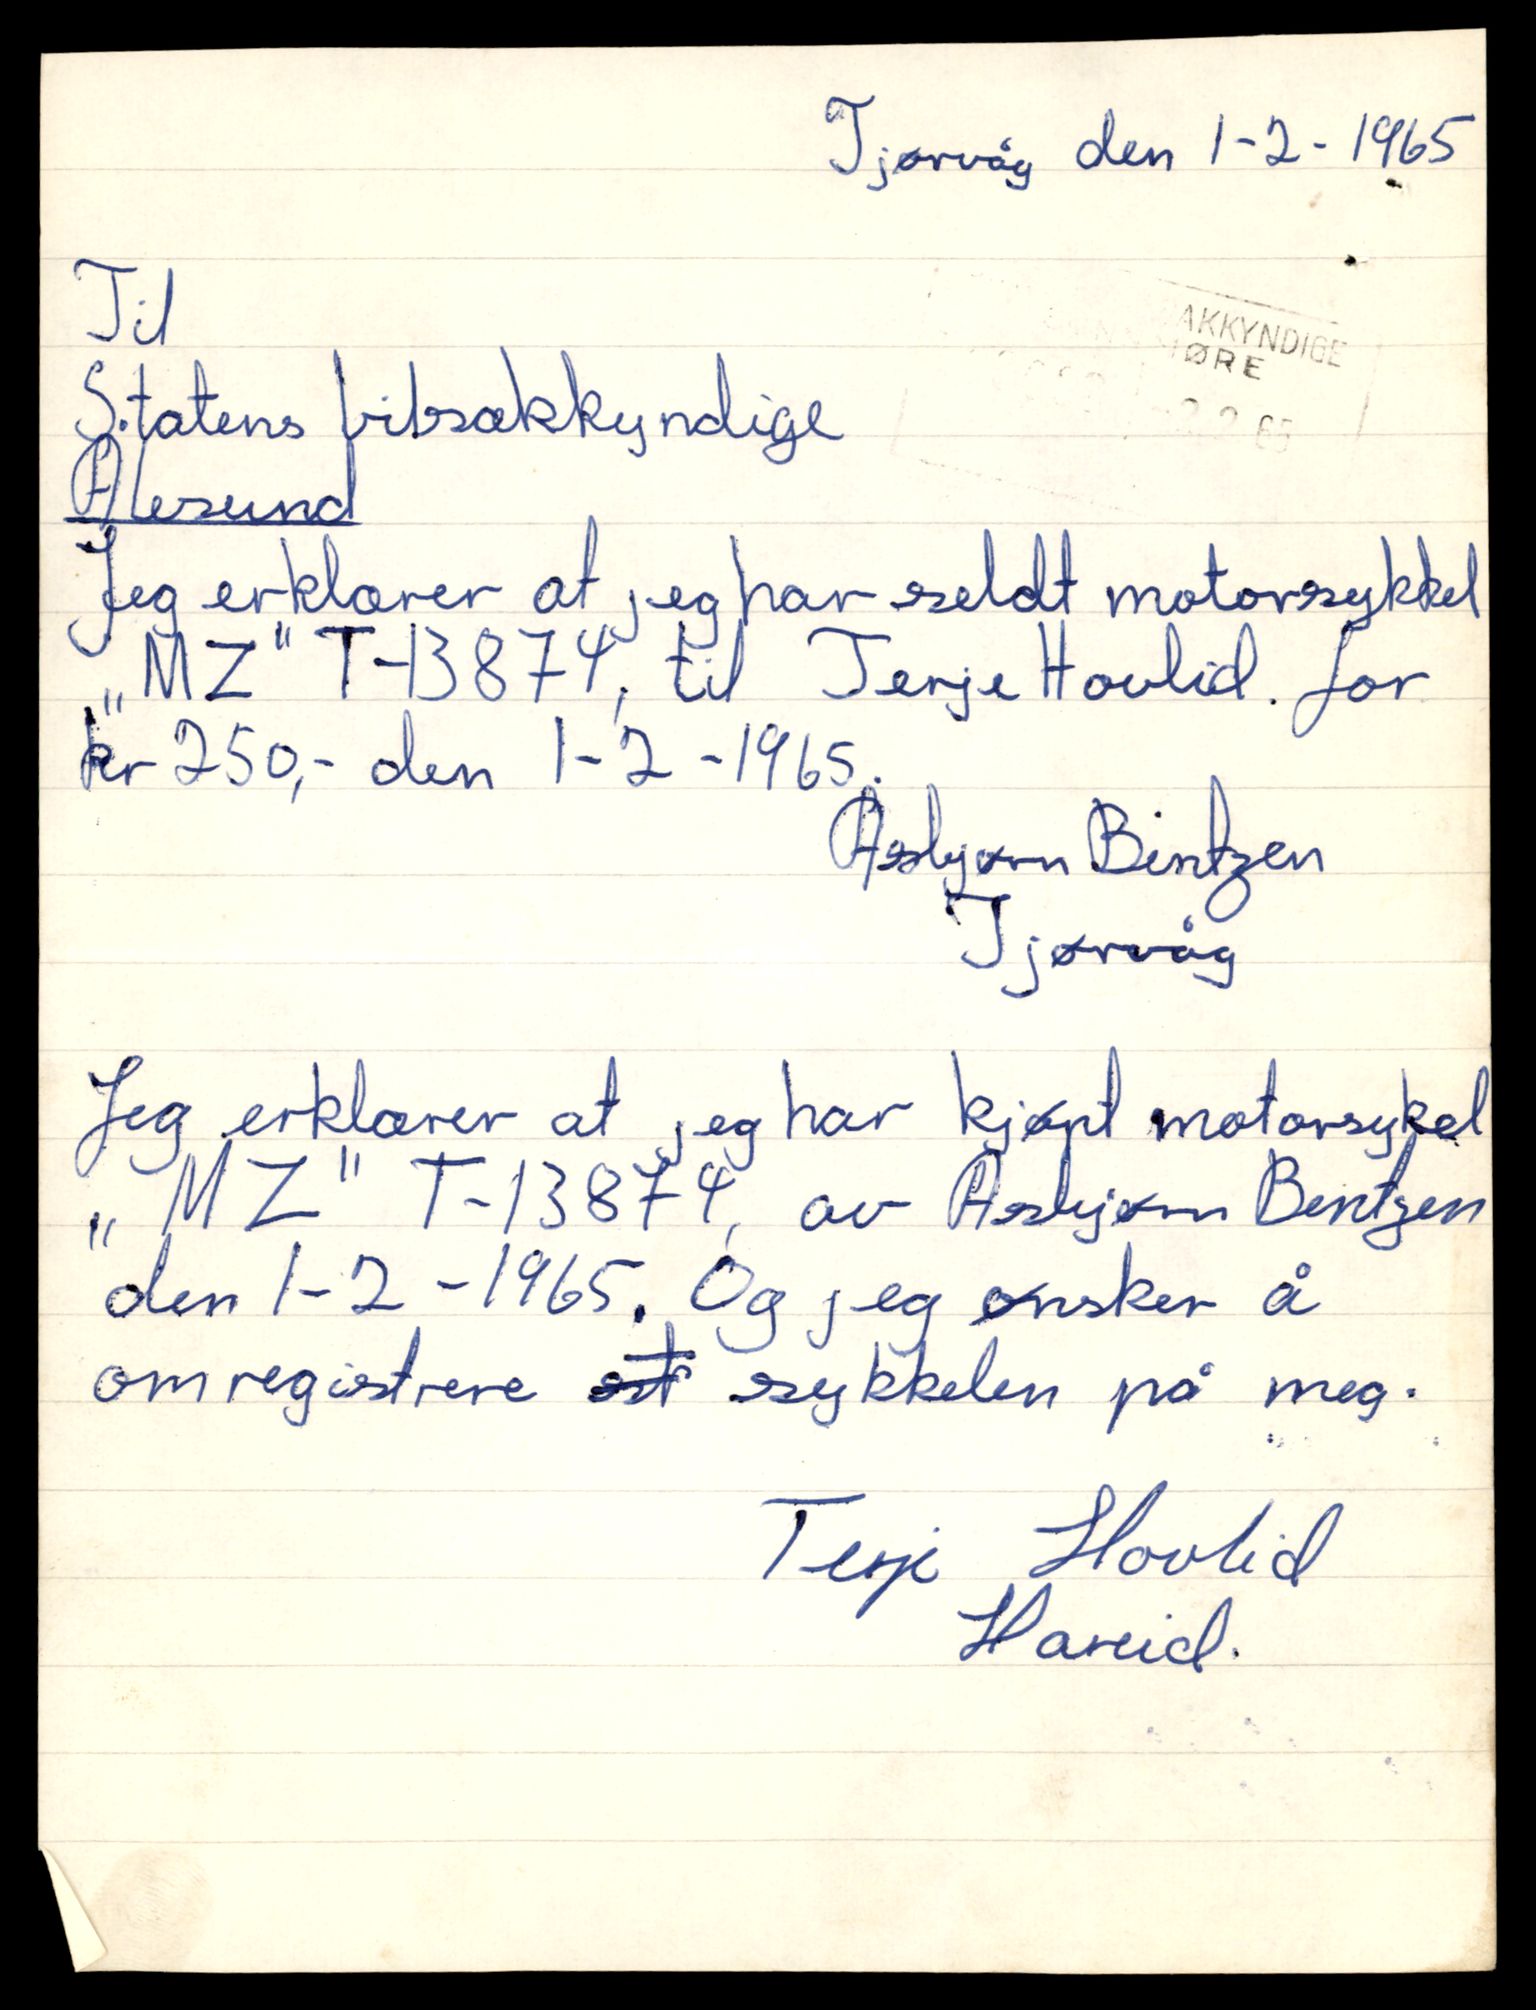 Tjørvåg den 1-2-1965
AKKYNDIGE
ØRE
2.2 65
Til
Statens bilsakkyndige
Ålesund
Jeg erklærer at jeg har seldt motorsykkel
„MZ" T-13874, til Terje Hovlid. for
kr 250,- den 1-2-1965.
Asbjørn Bintzen
Tjørvåg
Jeg erklærer at jeg har kjøpt motorsykel
„MZ" T-13874, av Asbjørn Bentzen
den 1-2-1965. Og jeg ønsker å
omregistrere sykkelen på meg.
Terje Hovlid
Hareid.